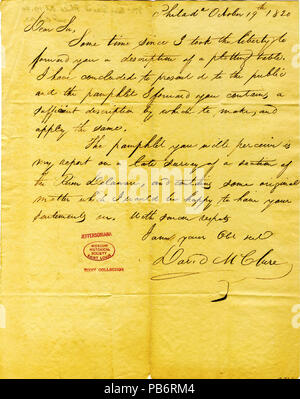 Philada October 19th 1820
Dear Sir,
Some time since I took the liberty to
forward you a description of a plotting table.
I have concluded to present it to the public
and the pamphlet I forward you contains a
sufficient description by which to make, and
apply the same.
The pamphlet you will perceive is
my report on a late survey of a section of
the River Delaware, and containing some original
matter which I should be happy to have your
sentiments on. With sincere respect
I am your Obt
David McClure
JEFFERSONIANA
MISSOURI
HISTORICAL
SOCIETY
SAINT LOUIS
BIXBY COLLECTION
alamy
Image ID: PB6RM4
www.alamy.com